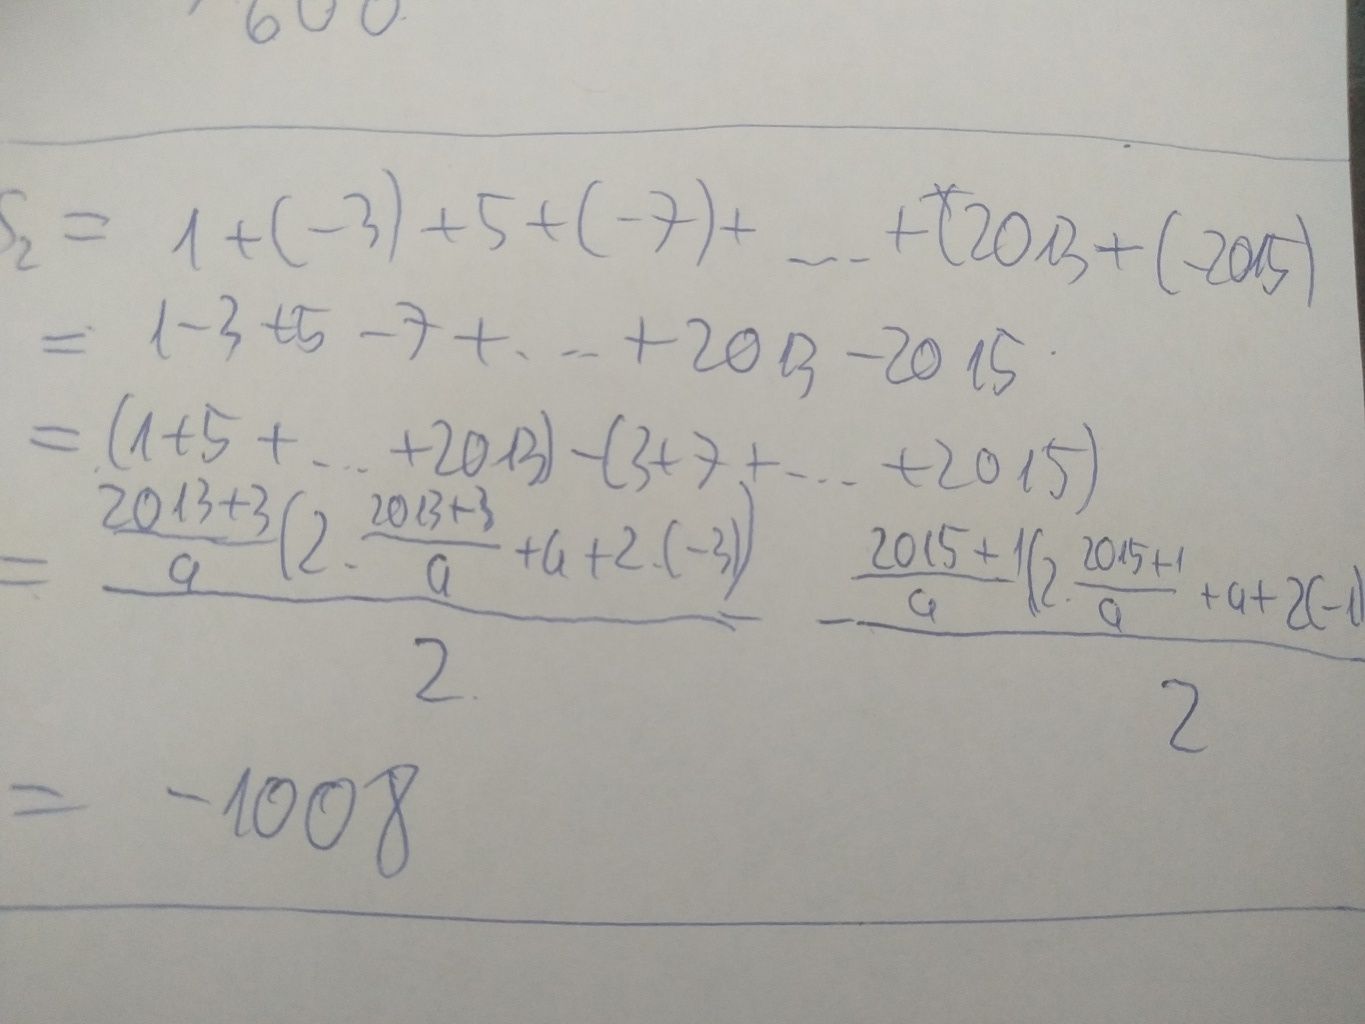 600
S₂ = 1 + (-3) + 5 + (-7) + ... + (2013 + (-2015)
= 1 - 3 + 5 - 7 + ... + 2013 - 2015
= (1 + 5 + ... + 2013) - (3 + 7 + ... + 2015)
= \frac{\frac{2013+3}{a}(2.\frac{2013+3}{a}+a+2.(-3))}{2} - \frac{\frac{2015+1}{a}(2.\frac{2015+1}{a}+a+2(-1)}{2}
= -1008